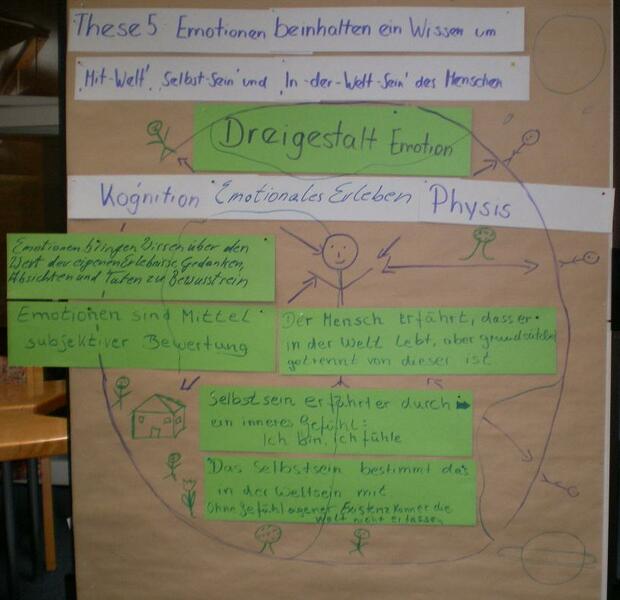 These 5 Emotionen beinhalten ein Wissen um
'Mit-Welt', 'Selbst-Sein' und 'In-der-Welt-Sein' des Menschen
Dreigestalt Emotion
Kognition Emotionales Erleben Physis
Emotionen bringen Wissen über den
Wert der eigenen Erlebnisse, Gedanken,
Absichten und Taten zu Bewusstsein
Emotionen sind Mittel
subjektiver Bewertung
Der Mensch erfährt, dass er
in der Welt lebt, aber grundsätzlich
getrennt von dieser ist
Selbstsein erfährt er durch
ein inneres Gefühl:
Ich bin, ich fühle
Das Selbstsein bestimmt das
in der Weltsein mit
Ohne Gefühl eigener Existenz kann er die
Welt nicht erfassen